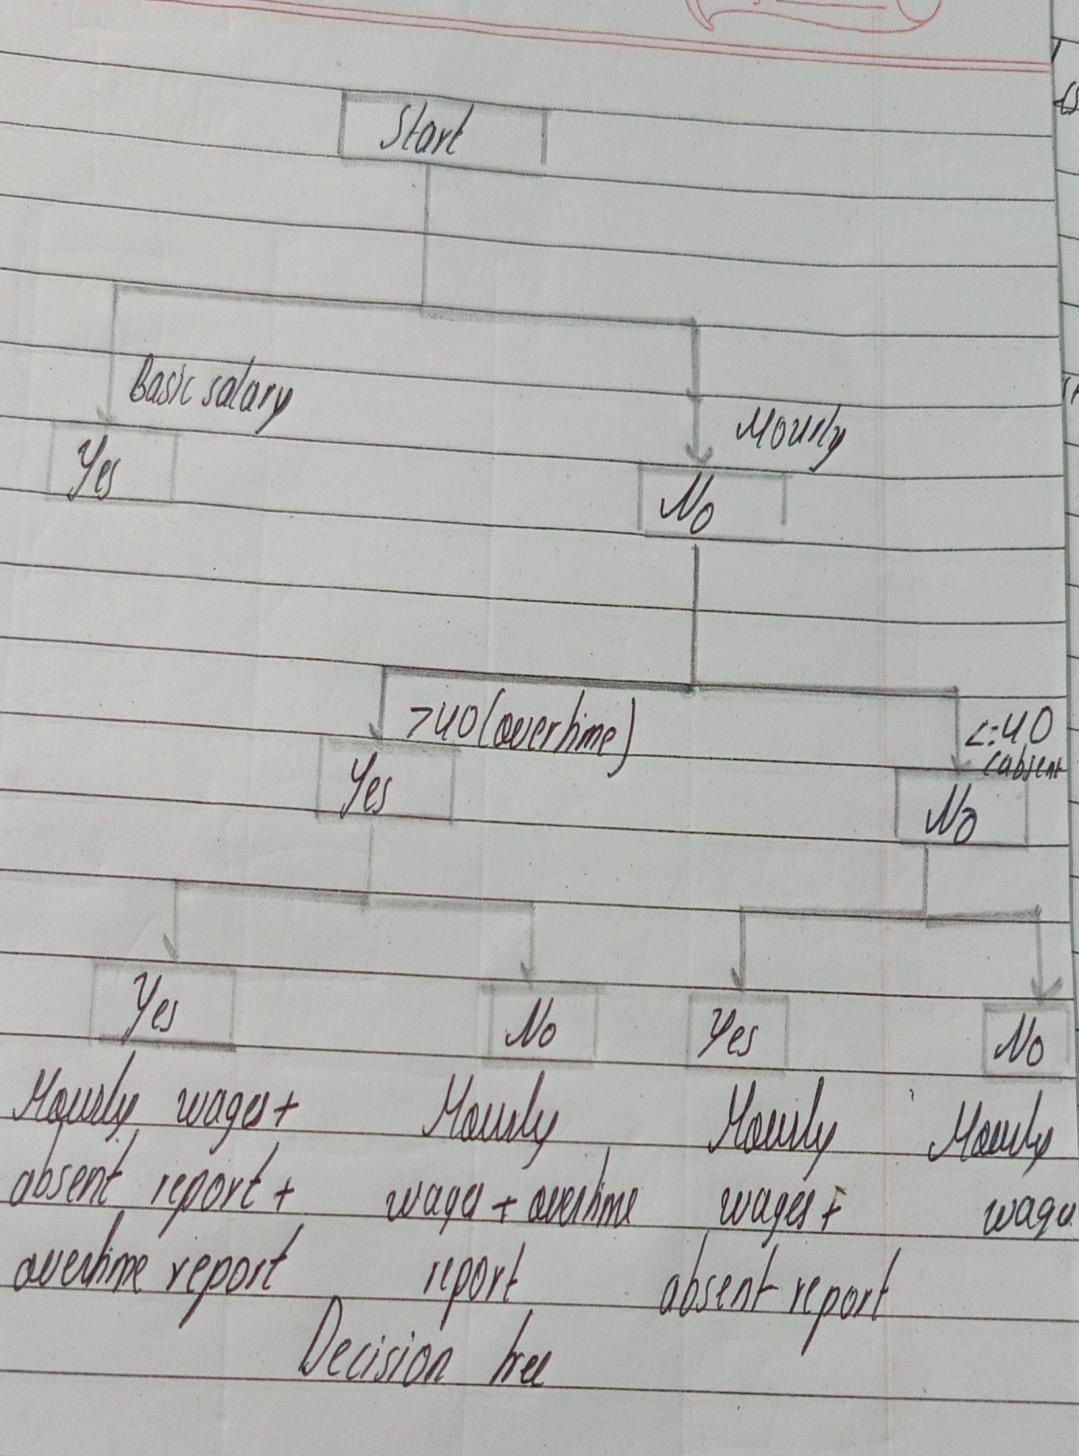 Start
Basic salary
Hourly
Yes
No
>40 (overtime)
<=40
(absent
Yes
No
Yes
No
Yes
No
Hourly wages +
absent report +
overtime report
Hourly
wages + overtime
report
Hourly
wages +
absent report
Hourly
wage
Decision tree